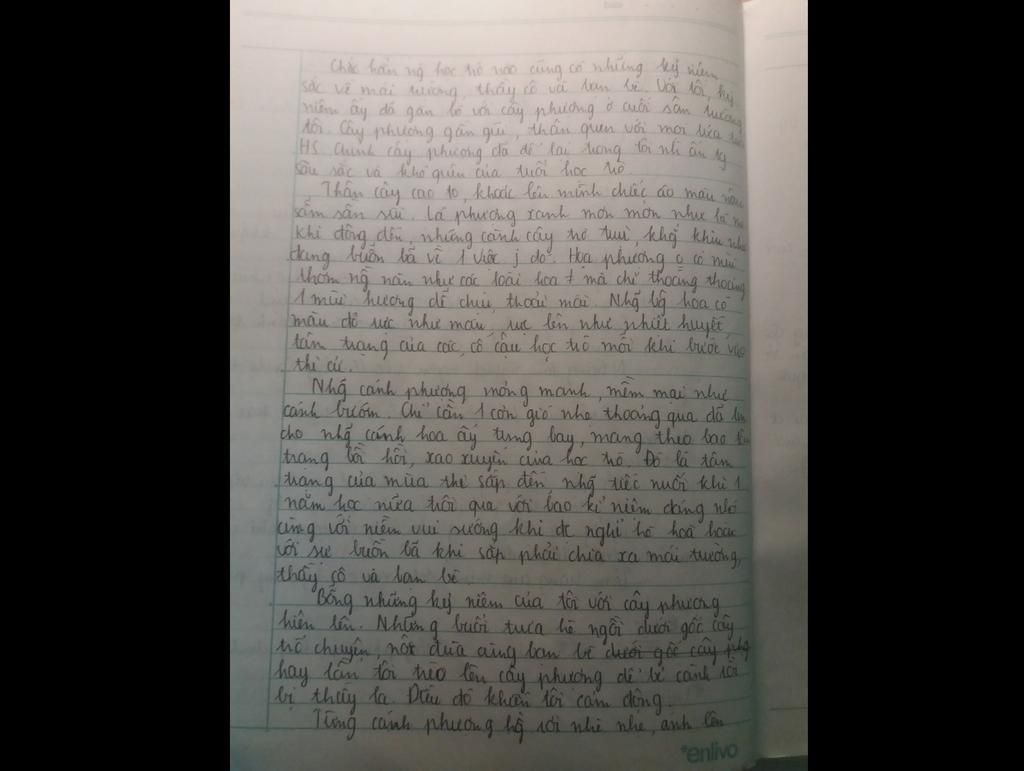 Chắc hẳn ng học trò nào cũng có những kỷ niệm
sắc về mái trường, thầy cô và bạn bè. Với tôi, kỷ
niệm ấy đã gắn bó với cây phượng ở cuối sân trường
tôi. Cây phượng gần gũi, thân quen với mọi lứa
HS. Chính cây phượng đã để lại trong tôi nh ấn tg
sâu sắc và khó quên của tuổi học trò.
Thân cây cao to, khoác lên mình chiếc áo màu nâu
sẫm sần sùi. Lá phượng xanh mơn mởn như lá me
khi đông đến, những cành cây trơ trụi, khẳng khiu như
đang buồn bã về 1 việc j đó. Hoa phượng o có mùi
thơm nồng nàn như các loài hoa ≠ mà chỉ thoang thoảng
1 mùi hương dễ chịu, thoải mái. Nhg bông hoa có
màu đỏ rực như máu, rực lên như nhiệt huyết,
tâm trạng của các cô cậu học trò mỗi khi bước vào
thi cử.
Nhg cánh phượng mỏng manh, mềm mại như
cánh bướm. Chỉ cần 1 cơn gió nhẹ thoảng qua đã làm
cho nhg cánh hoa ấy tung bay, mang theo bao tâm
trạng bồi hồi, xao xuyến của học trò. Đó là tâm
trạng của mùa thi sắp đến, nhg tiếc nuối khi 1
năm học nữa trôi qua với bao kỉ niệm đáng nhớ
cùng với niềm vui sướng khi đc nghỉ hè hoà
với sự buồn bã khi sắp phải chia xa mái trường,
thầy cô và bạn bè.
Bỗng những kỷ niệm của tôi với cây phượng
hiện lên. Những buổi trưa hè ngồi dưới gốc cây
trò chuyện, nô đùa cùng bạn bè dưới gốc cây phg
hay lần tôi trèo lên cây phượng để bẻ cành rồi
bị thầy la. Điều đó khiến tôi cảm động.
Từng cánh phượng hg rơi nhè nhẹ, ánh lên
enlivo